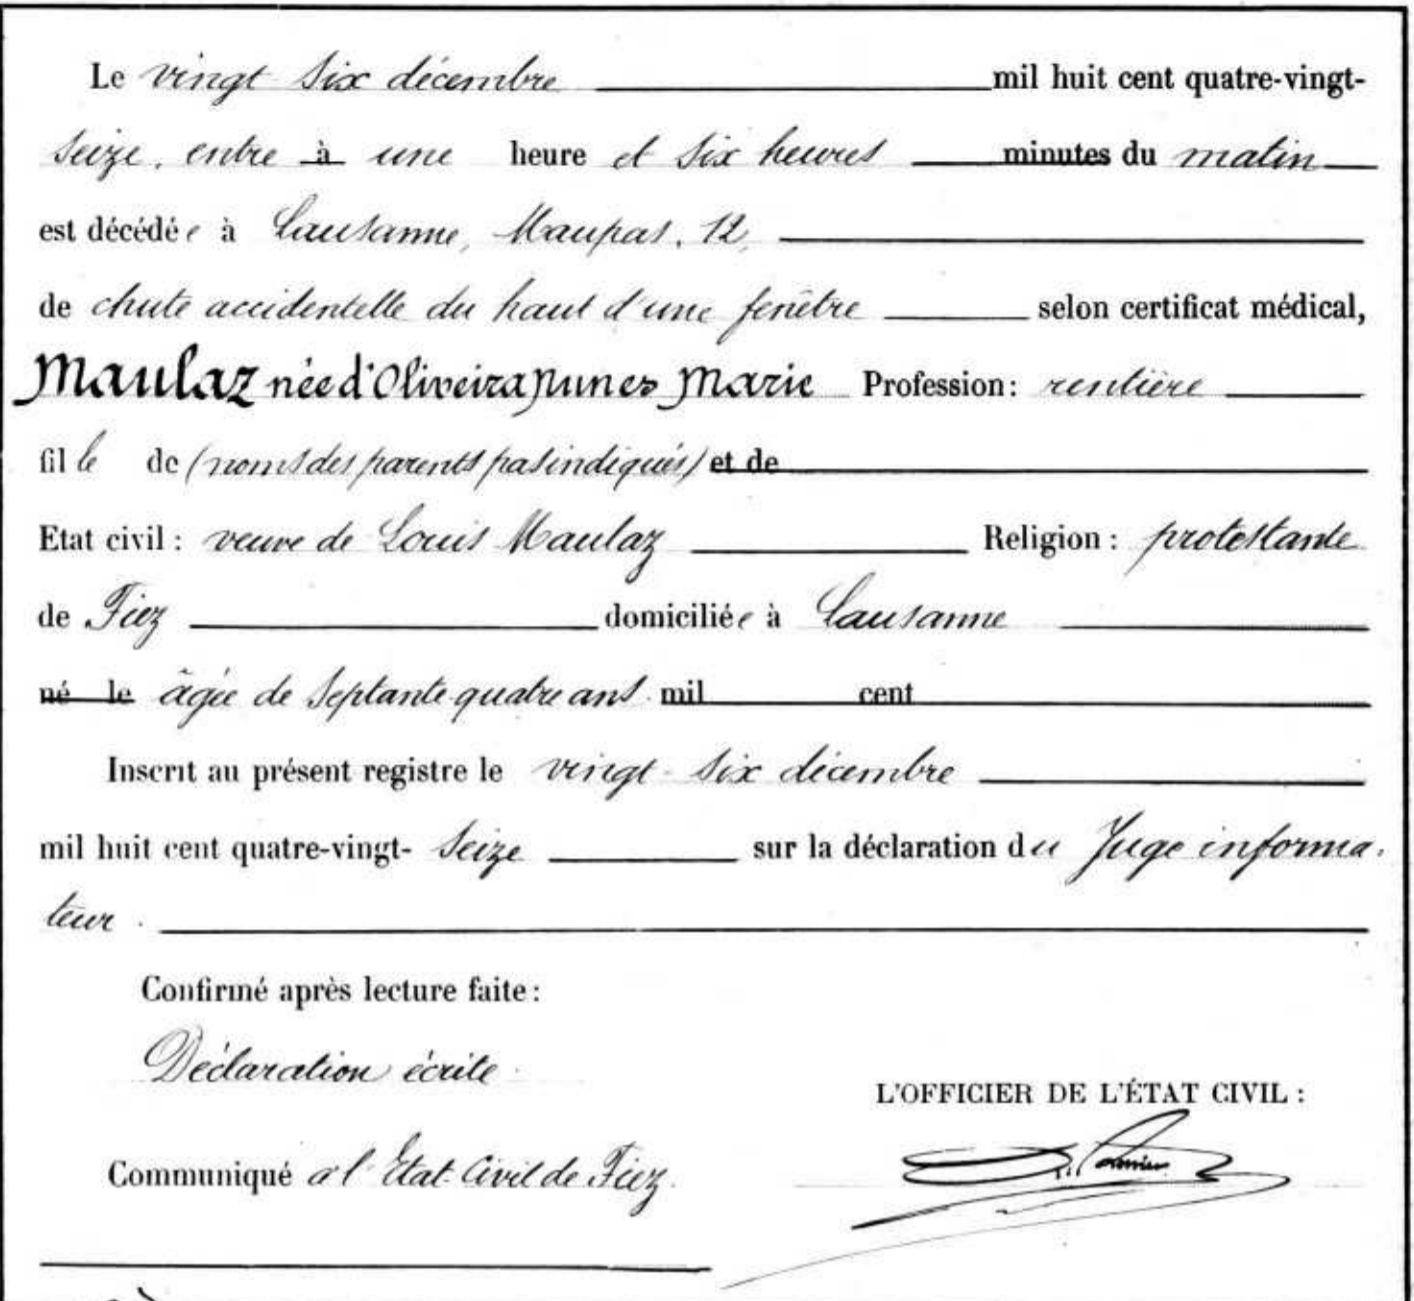 Le vingt six décembre mil huit cent quatre-vingt-
seize, entre à une heure et six heures minutes du matin
est décédée à Lausanne, Maupas, 12,
de chute accidentelle du haut d'une fenêtre selon certificat médical,
Maulaz née d'Oliveira Nunes Marie Profession: rentière
fille de (noms des parents pas indiqués) et de
Etat civil: veuve de Louis Maulaz Religion: protestante
de Fiez domiciliée à Lausanne
né le âgée de septante-quatre ans. mil cent
Inscrit au présent registre le vingt-six décembre
mil huit cent quatre-vingt- seize sur la déclaration du Juge informa-
teur.
Confirmé après lecture faite:
Déclaration écrite.
L'OFFICIER DE L'ÉTAT CIVIL:
Communiqué à l'Etat-Civil de Fiez.